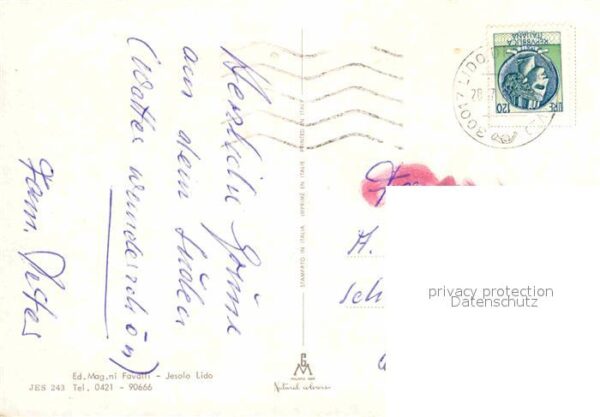 Herzliche Grüße
aus dem Süden
(Wetter wunderschön)
Fam.
Ed. Mag.ni Favaffi - Jesolo Lido
JES 243 Tel. 0421 - 90666
STAMPATO IN ITALIA IMPRIMÉ EN ITALIE PRINTED IN ITALY
Fam.
A.
Sch
REPUBBLICA
ITALIANA
LIRE 120
30017 LIDO D
privacy protection
Datenschutz